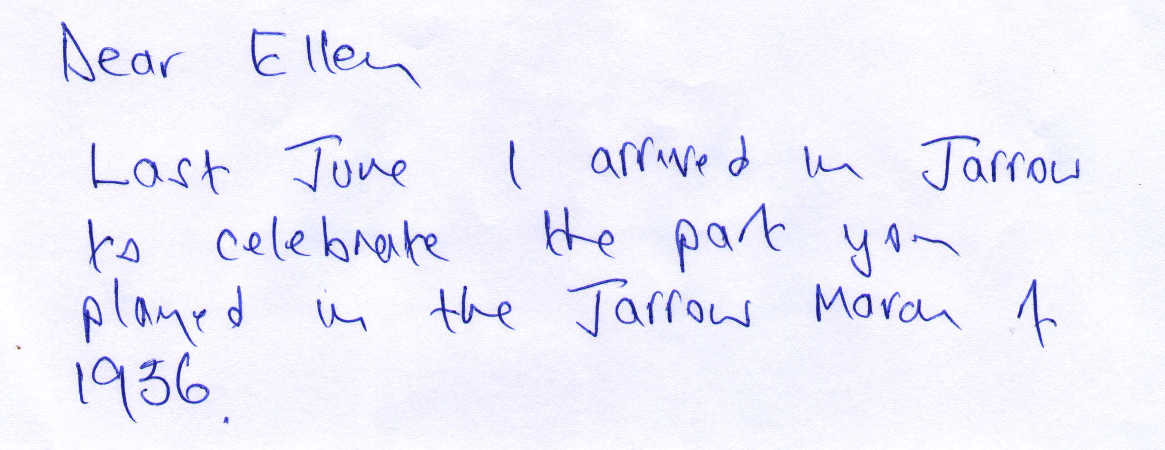 Dear Ellen
Last June I arrived in Jarrow
to celebrate the part you
played in the Jarrow March of
1936.